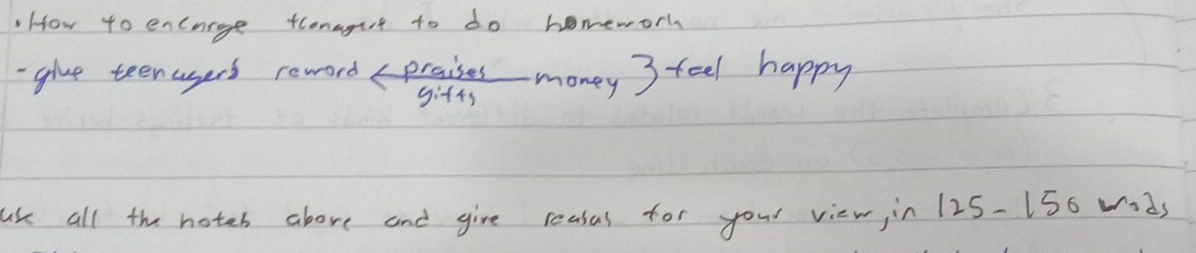 • How to encnrge teenagers to do homework
- give teenagers reword < praises - money } feel happy
gifts
use all the notes above and give reasas for your view, in 125 - 150 words